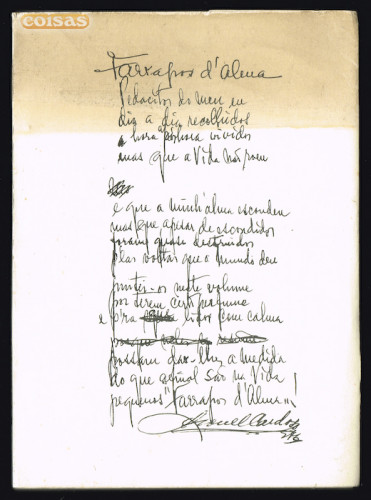 coisas
Farrapos d'Alma
Pedacitos do meu eu
dia a dia recolhidos
e hora p'hora vividos
mas que a Vida não
e que a minh'alma escondeu
mas que apesar de escondidos
foram quase destruidos
p'las voltas que o mundo deu
juntei-os neste volume
por serem
e p'ra lidos com calma
possam dar-lhes a medida
do que afinal são na Vida
pequenos "Farrapos d'Alma"...!